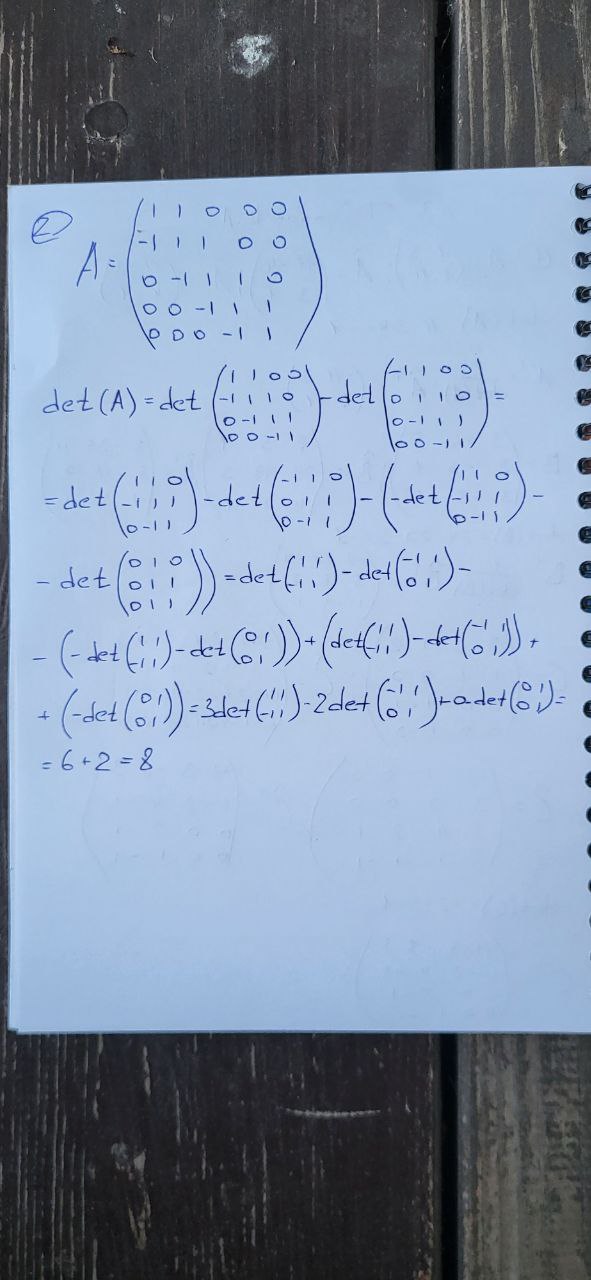 2
A = ( 1 1 0 0 0
-1 1 1 0 0
0 -1 1 1 0
0 0 -1 1 1
0 0 0 -1 1 )
det(A) = det ( 1 1 0 0 / -1 1 1 0 / 0 -1 1 1 / 0 0 -1 1 ) - det ( -1 1 0 0 / 0 1 1 0 / 0 -1 1 1 / 0 0 -1 1 ) =
= det ( 1 1 0 / -1 1 1 / 0 -1 1 ) - det ( -1 1 0 / 0 1 1 / 0 -1 1 ) - ( - det ( 1 1 0 / -1 1 1 / 0 -1 1 ) -
- det ( 0 1 0 / 0 1 1 / 0 1 1 ) ) = det ( 1 1 / -1 1 ) - det ( -1 1 / 0 1 ) -
- ( - det ( 1 1 / -1 1 ) - det ( 0 1 / 0 1 ) ) + ( det ( 1 1 / -1 1 ) - det ( -1 1 / 0 1 ) ) +
+ ( - det ( 0 1 / 0 1 ) ) = 3 det ( 1 1 / -1 1 ) - 2 det ( -1 1 / 0 1 ) + a det ( 0 1 / 0 1 ) =
= 6 + 2 = 8